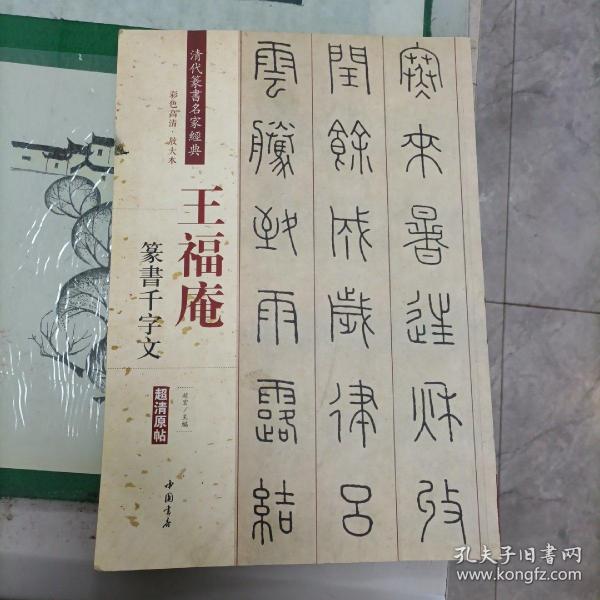 清代篆書名家經典
彩色高清·放大本
王福庵
篆書千字文
超清原帖
主編
中国书店
寒來暑往秋收
閏餘成歲律呂
雲騰致雨露結
孔夫子旧书网
www.kongfz.com